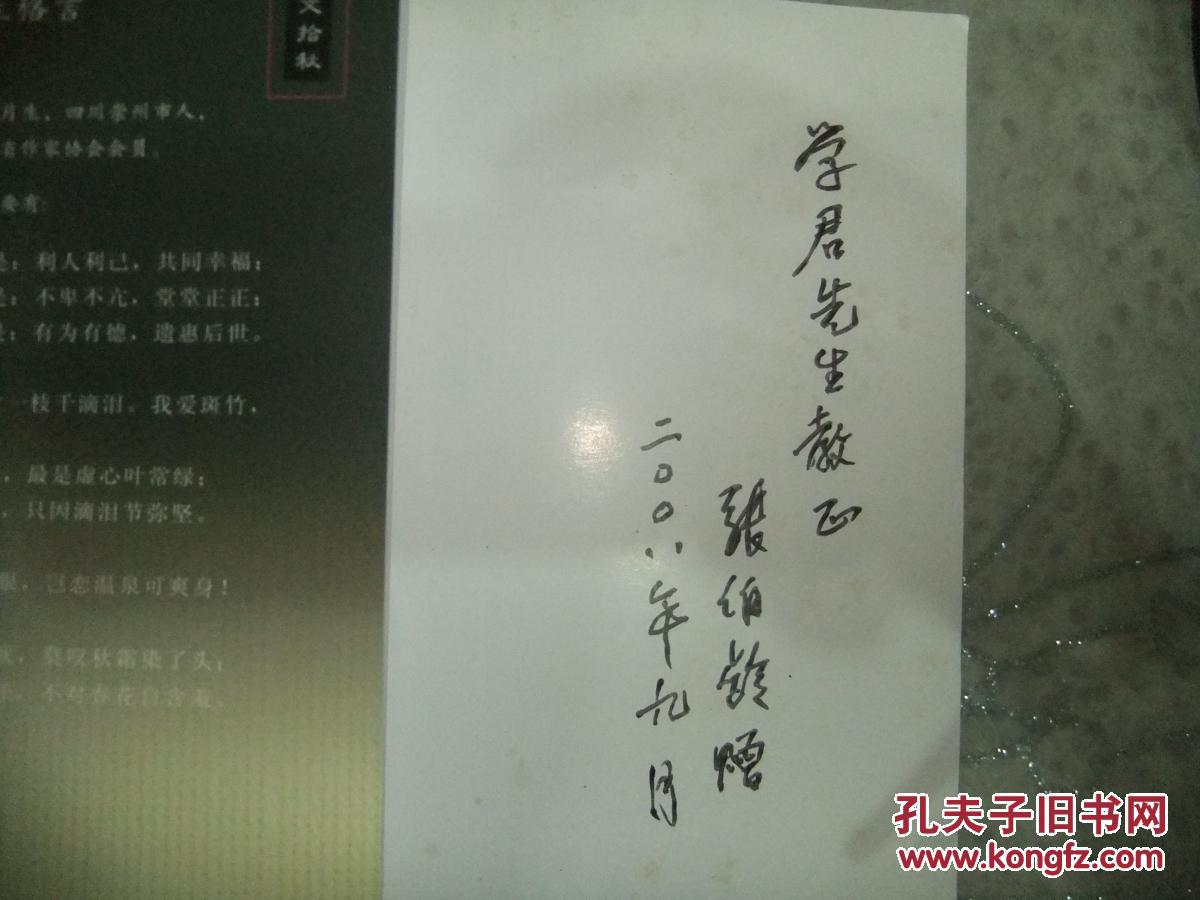 格言
文拾秋
月生，四川崇州市人，
省作家协会会员。
利人利己，共同幸福；
不卑不亢，堂堂正正；
有为有德，遗惠后世。
一枝千滴泪。我爱斑竹，
，最是虚心叶常绿；
，只因滴泪节弥坚。
，岂恋温泉可爽身！
，莫叹秋霜染了头；
不对春花自含羞。
学君先生教正
张伯龄赠
二〇〇八年九月
孔夫子旧书网
www.kongfz.com